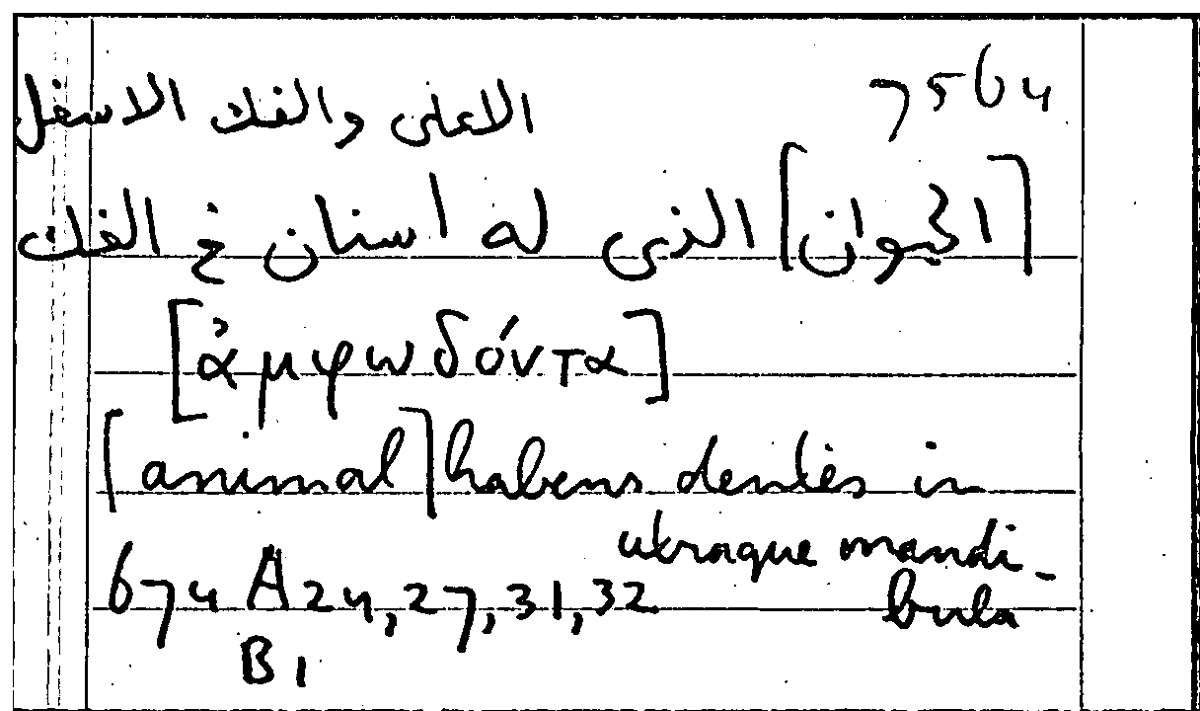 7564
الاعلى والفك الاسفل
[الحيوان] الذى له اسنان فى الفك
[ἀμφωδόντα]
[animal] habens dentes in
utraque mandi-
bula
674 A24,27,31,32
B1